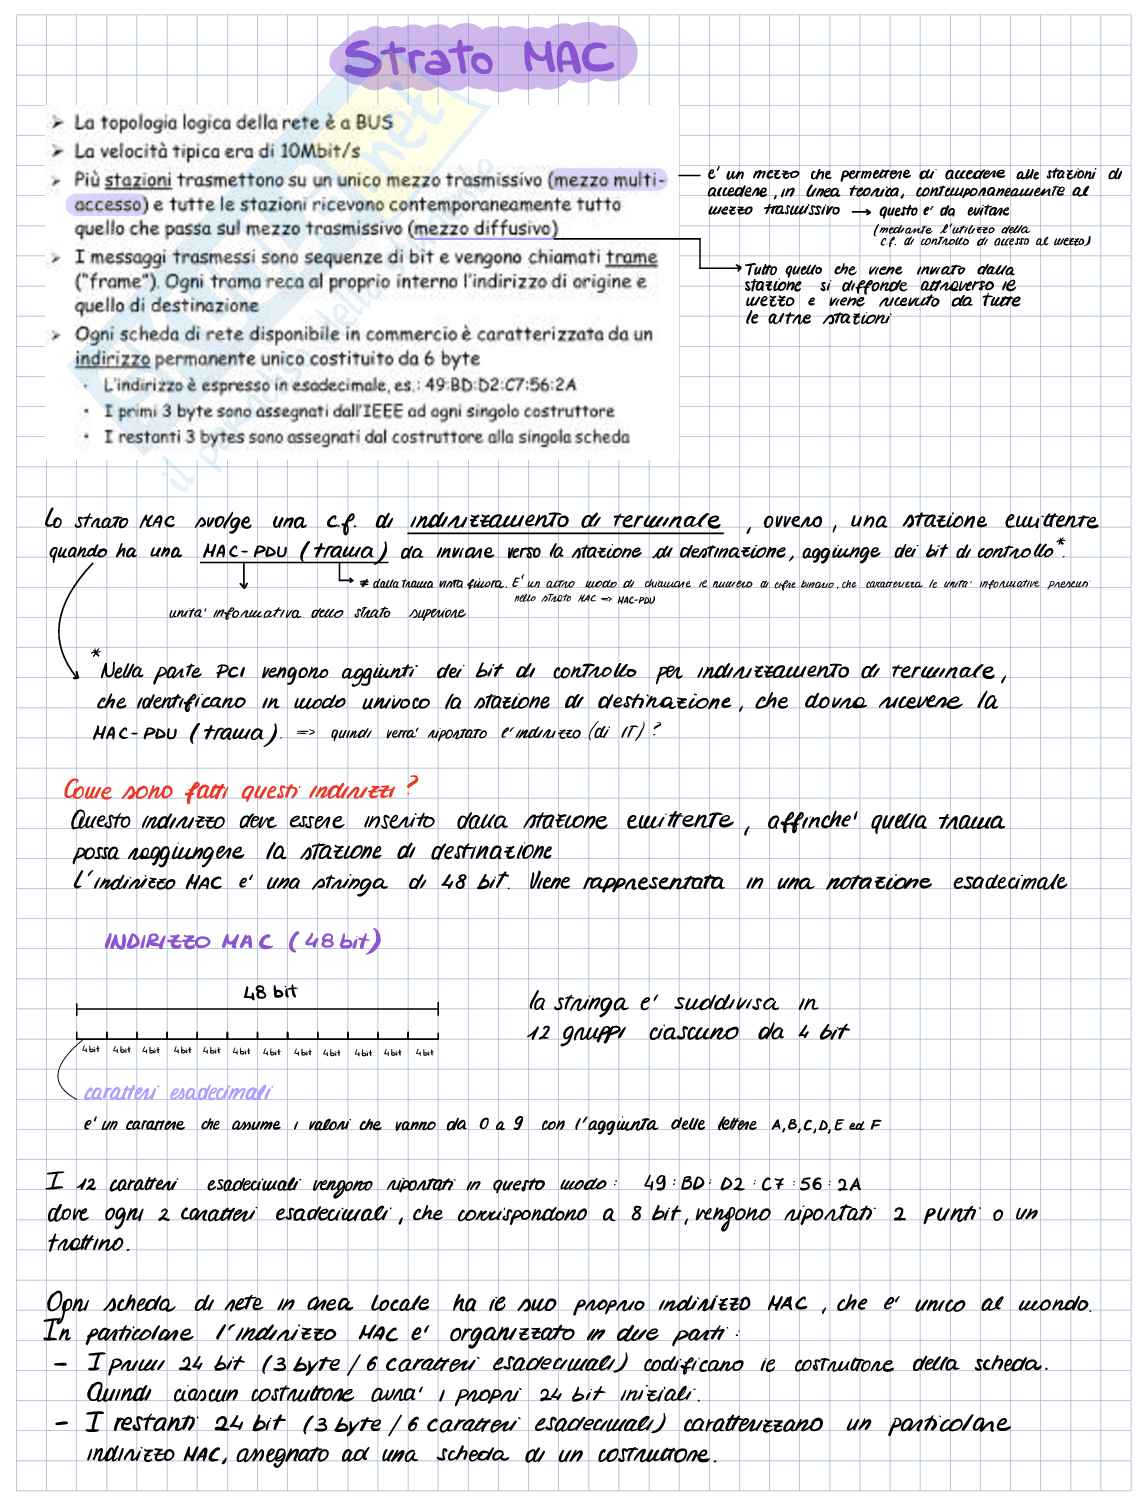 Strato MAC
➢ La topologia logica della rete è a BUS
➢ La velocità tipica era di 10Mbit/s
➢ Più stazioni trasmettono su un unico mezzo trasmissivo (mezzo multi-
accesso) e tutte le stazioni ricevono contemporaneamente tutto
quello che passa sul mezzo trasmissivo (mezzo diffusivo)
➢ I messaggi trasmessi sono sequenze di bit e vengono chiamati trame
("frame"). Ogni trama reca al proprio interno l'indirizzo di origine e
quello di destinazione
➢ Ogni scheda di rete disponibile in commercio è caratterizzata da un
indirizzo permanente unico costituito da 6 byte
• L'indirizzo è espresso in esadecimale, es.: 49:BD:D2:C7:56:2A
• I primi 3 byte sono assegnati dall'IEEE ad ogni singolo costruttore
• I restanti 3 bytes sono assegnati dal costruttore alla singola scheda
e' un mezzo che permettere di accedere alle stazioni di
accedere, in linea teorica, contemporaneamente al
mezzo trasmissivo → questo e' da evitare
(mediante l'utilizzo della
c.f. di controllo di accesso al mezzo)
Tutto quello che viene inviato dalla
stazione si diffonde attraverso ie
mezzo e viene ricevuto da tutte
le altre stazioni
Lo strato MAC svolge una c.f. di indirizzamento di terminale, ovvero, una stazione emittente
quando ha una MAC-PDU (trama) da inviare verso la stazione di destinazione, aggiunge dei bit di controllo*.
≠ dalla trama vista finora. E' un altro modo di chiamare ie numero di cifre binarie, che caratterizza le unita' informative presenti
nello strato MAC => MAC-PDU
unita' informativa dello strato superiore
*
Nella parte PCI vengono aggiunti dei bit di controllo per indirizzamento di terminale,
che identificano in modo univoco la stazione di destinazione, che dovra ricevere la
MAC-PDU (trama). => quindi verra' riportato l'indirizzo (di IT)?
Come sono fatti questi indirizzi?
Questo indirizzo deve essere inserito dalla stazione emittente, affinche' quella trama
possa raggiungere la stazione di destinazione
L'indirizzo MAC e' una stringa di 48 bit. Viene rappresentata in una notazione esadecimale
INDIRIZZO MAC (48 bit)
48 bit
4bit 4bit 4bit 4bit 4bit 4bit 4bit 4bit 4bit 4bit 4bit 4bit
la stringa e' suddivisa in
12 gruppi ciascuno da 4 bit
caratteri esadecimali
e' un carattere che assume i valori che vanno da 0 a 9 con l'aggiunta delle lettere A,B,C,D,E ed F
I 12 caratteri esadecimali vengono riportati in questo modo: 49:BD:D2:C7:56:2A
dove ogni 2 caratteri esadecimali, che corrispondono a 8 bit, vengono riportati 2 punti o un
trattino.
Ogni scheda di rete in area locale ha ie suo proprio indirizzo MAC, che e' unico al mondo.
In particolare l'indirizzo MAC e' organizzato in due parti:
- I primi 24 bit (3 byte / 6 caratteri esadecimali) codificano ie costruttore della scheda.
Quindi ciascun costruttore avra' i propri 24 bit iniziali.
- I restanti 24 bit (3 byte / 6 caratteri esadecimali) caratterizzano un particolare
indirizzo MAC, assegnato ad una scheda di un costruttore.